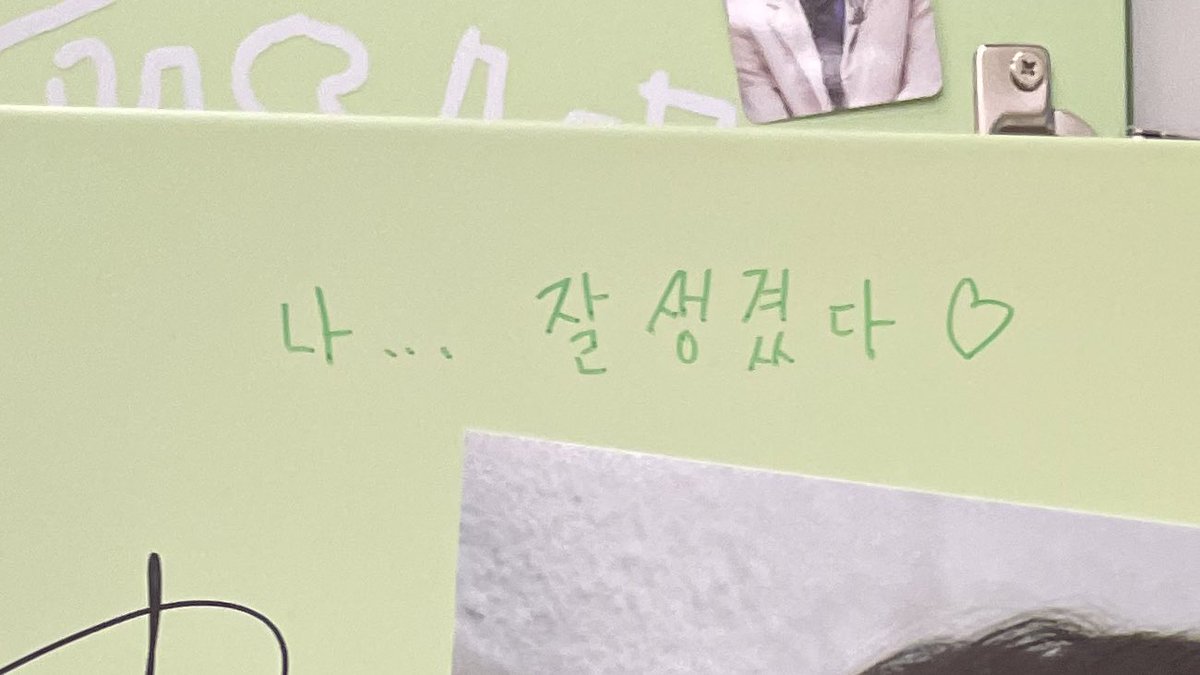 나... 잘생겼다♡